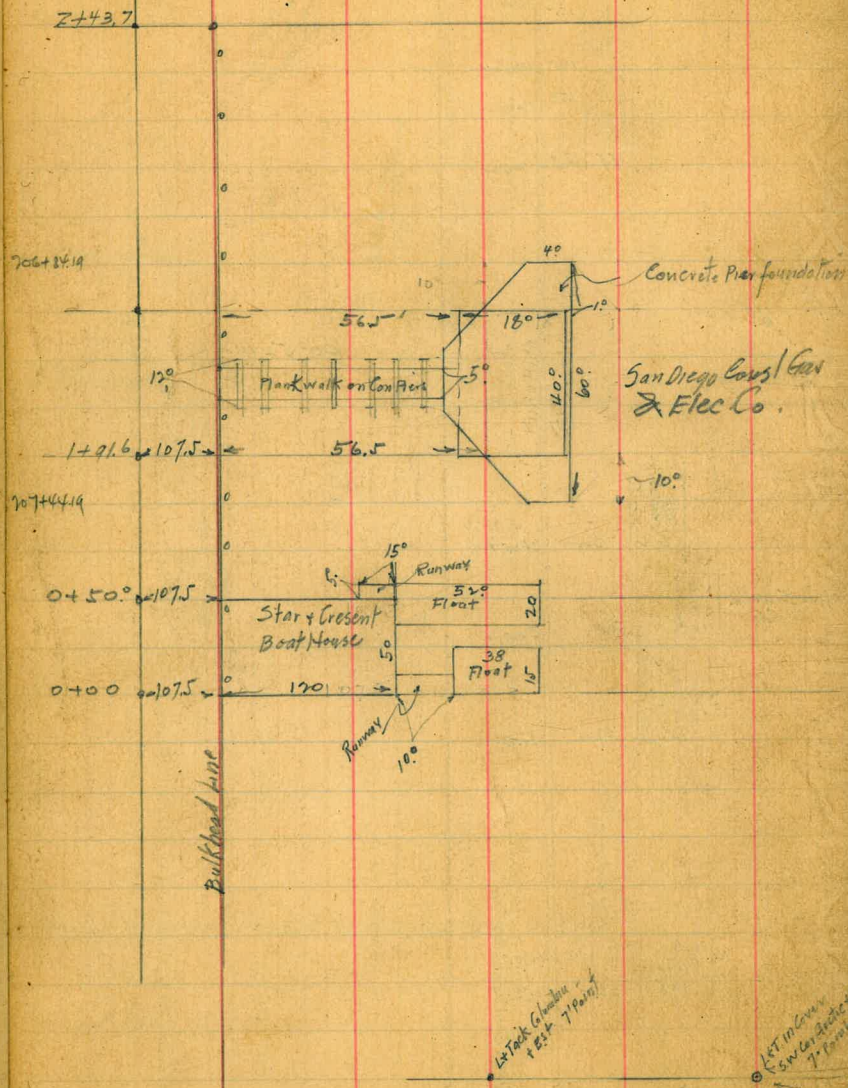 2+43.7
206+84.19
4⁰
Concrete Pier foundation
10
1⁰
56.5'
18⁰
12⁰
Plankwalk on Con Piers
5⁰
40⁰
60⁰
San Diego Consl Gas
& Elec Co.
1+91.6
107.5
56.5
10⁰
207+44.19
15⁰
Runway
5⁰
0+50.⁰
107.5
52⁰
Float
20
Star & Cresent
Boat House
50
38
Float
15
0+00
107.5
120
Runway
10.⁰
Bulkhead Line
L+Tack Columbia
+ Est 7' Point
L+T. in Cover
S.W Cor Arctic +